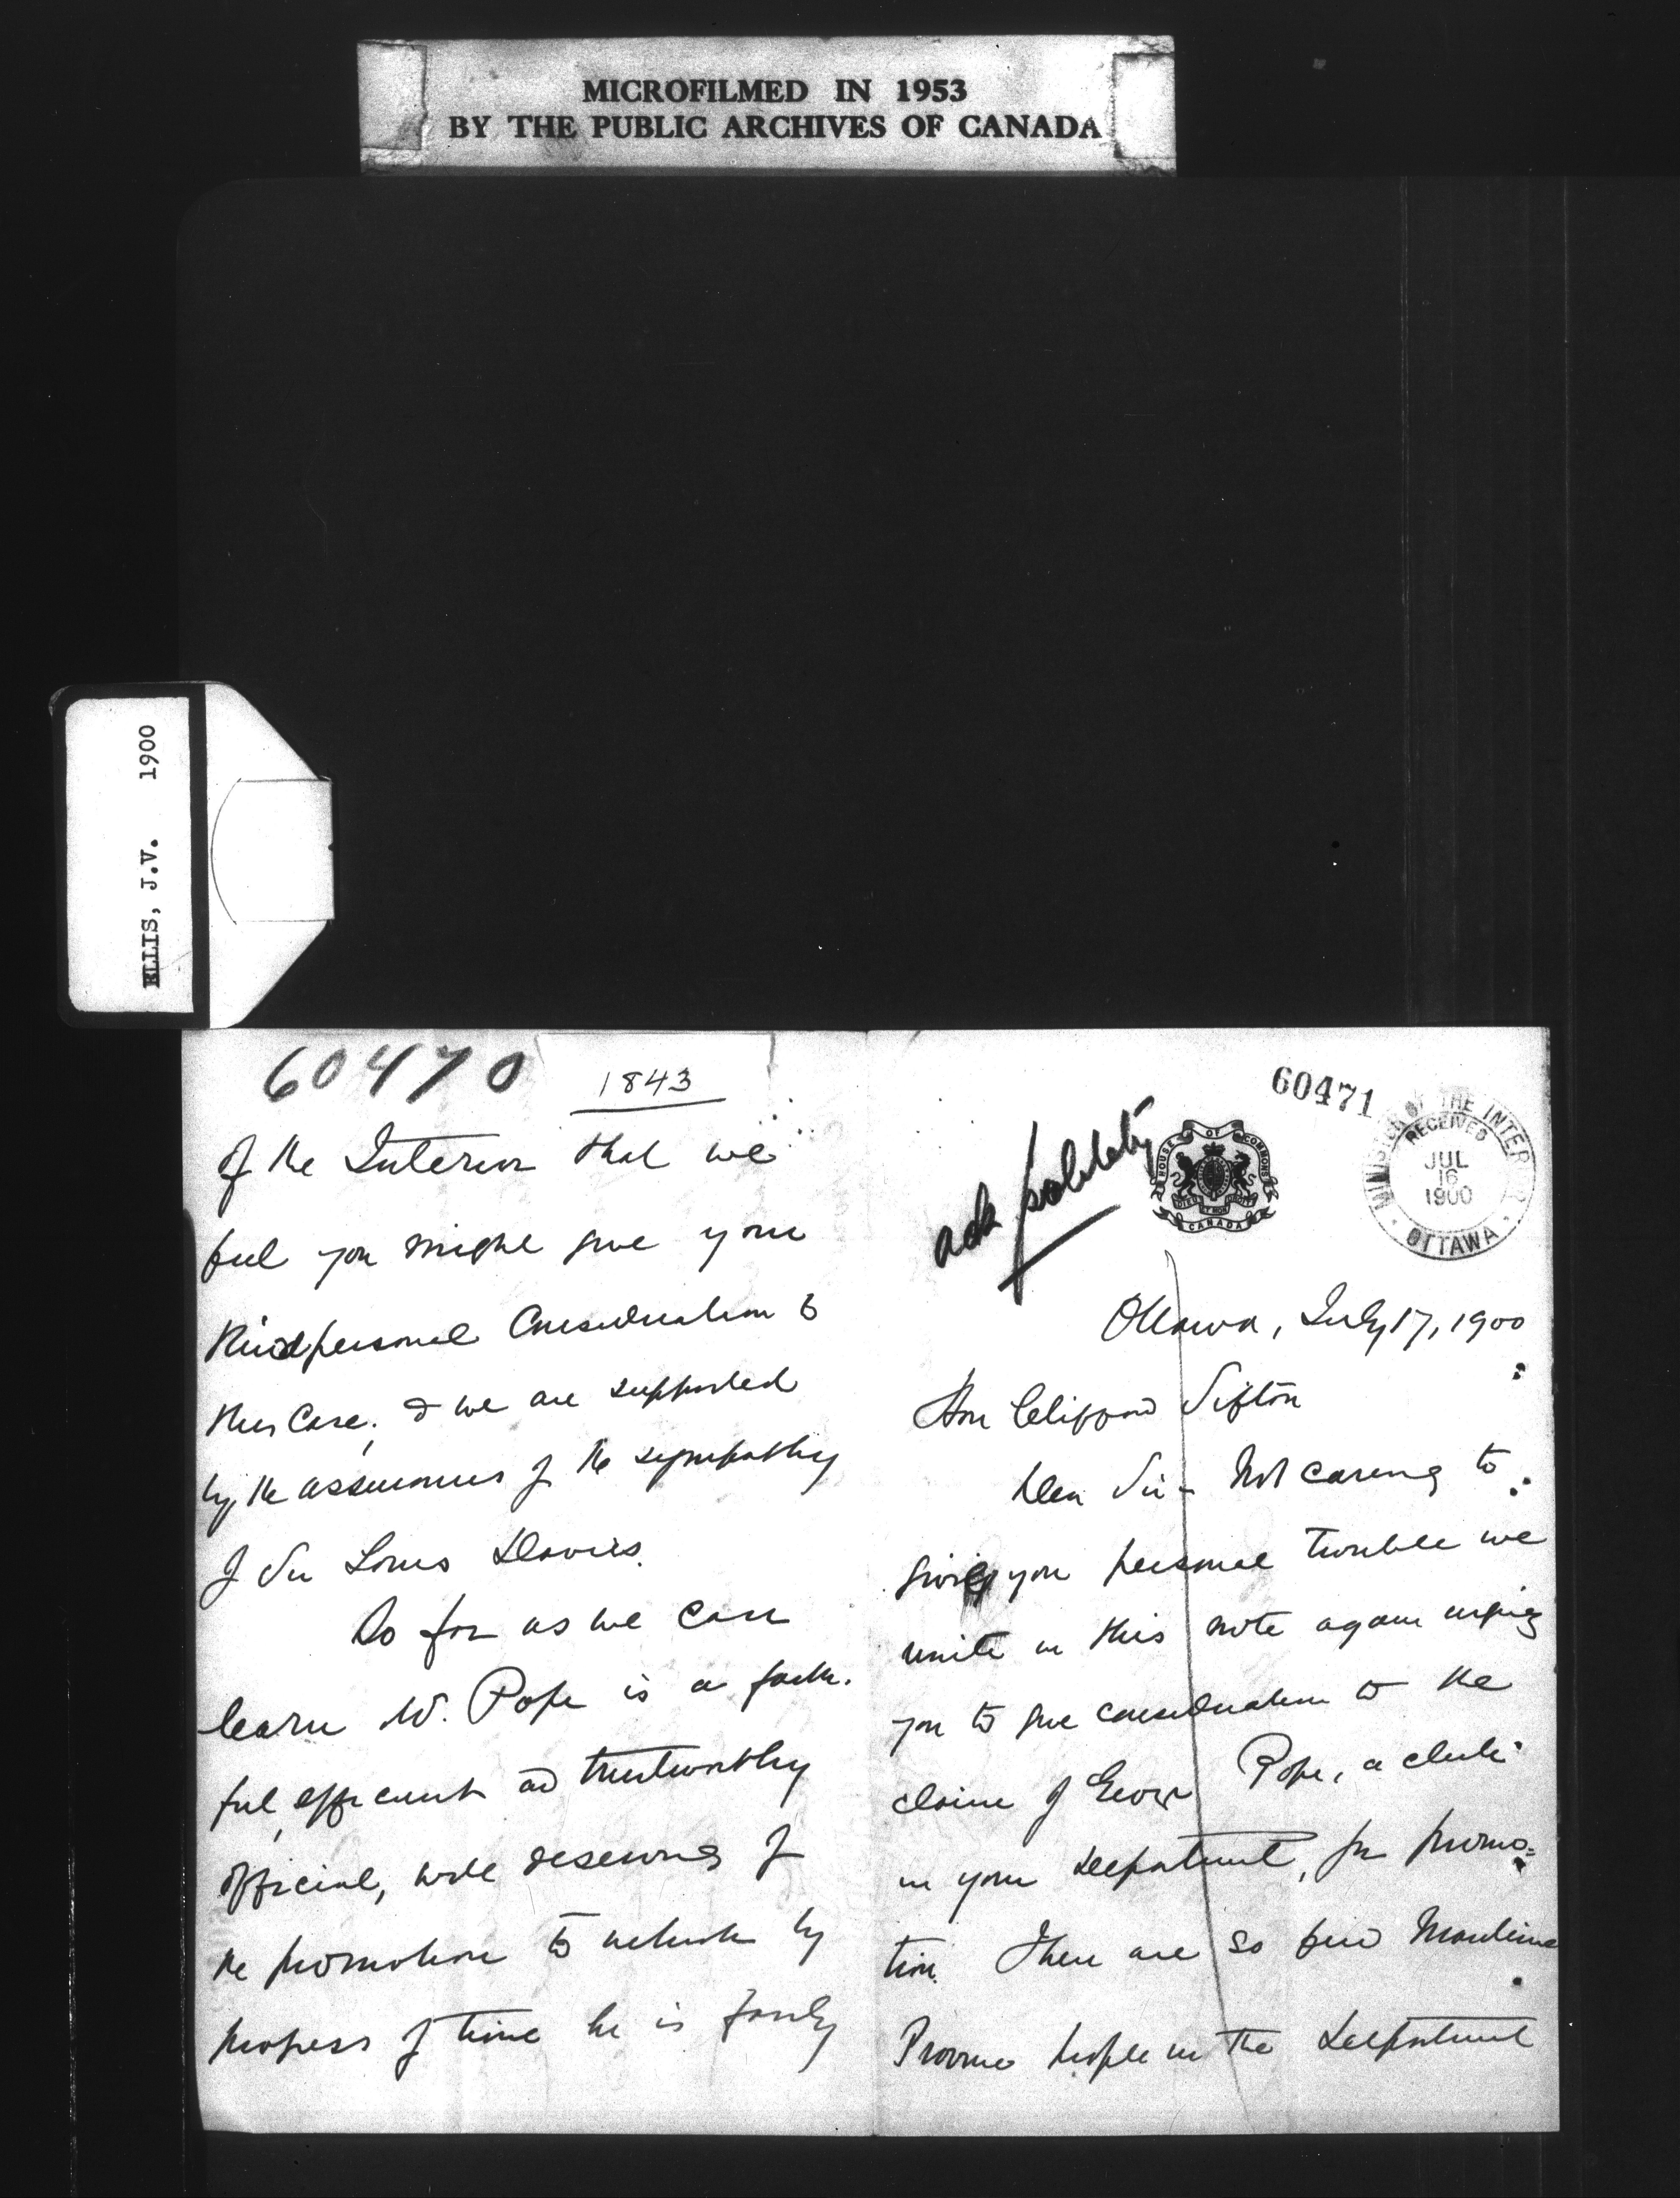 MICROFILMED IN 1953
BY THE PUBLIC ARCHIVES OF CANADA
ELLIS, J.V. 1900
60470
1843
of the Interior that we
feel you might give your
kind personal consideration to
this case; & we are supported
by the assurances of the sympathy
of Sir Louis Davies.
So far as we can
learn Mr. Pope is a faith-
ful, efficient and trustworthy
official, well deserving of
the promotion to which by
progress of time he is fairly
60471
ack politely
HOUSE OF COMMONS
CANADA
MINISTER OF THE INTERIOR
RECEIVED
JUL
16
1900
OTTAWA
Ottawa, July 17, 1900
Hon Clifford Sifton
Dear Sir - Not caring to
give you personal trouble we
unite in this note again urging
you to give consideration to the
claim of George Pope, a clerk
in your Department, for promo=
tion. There are so few Maritime
Province people in the Department